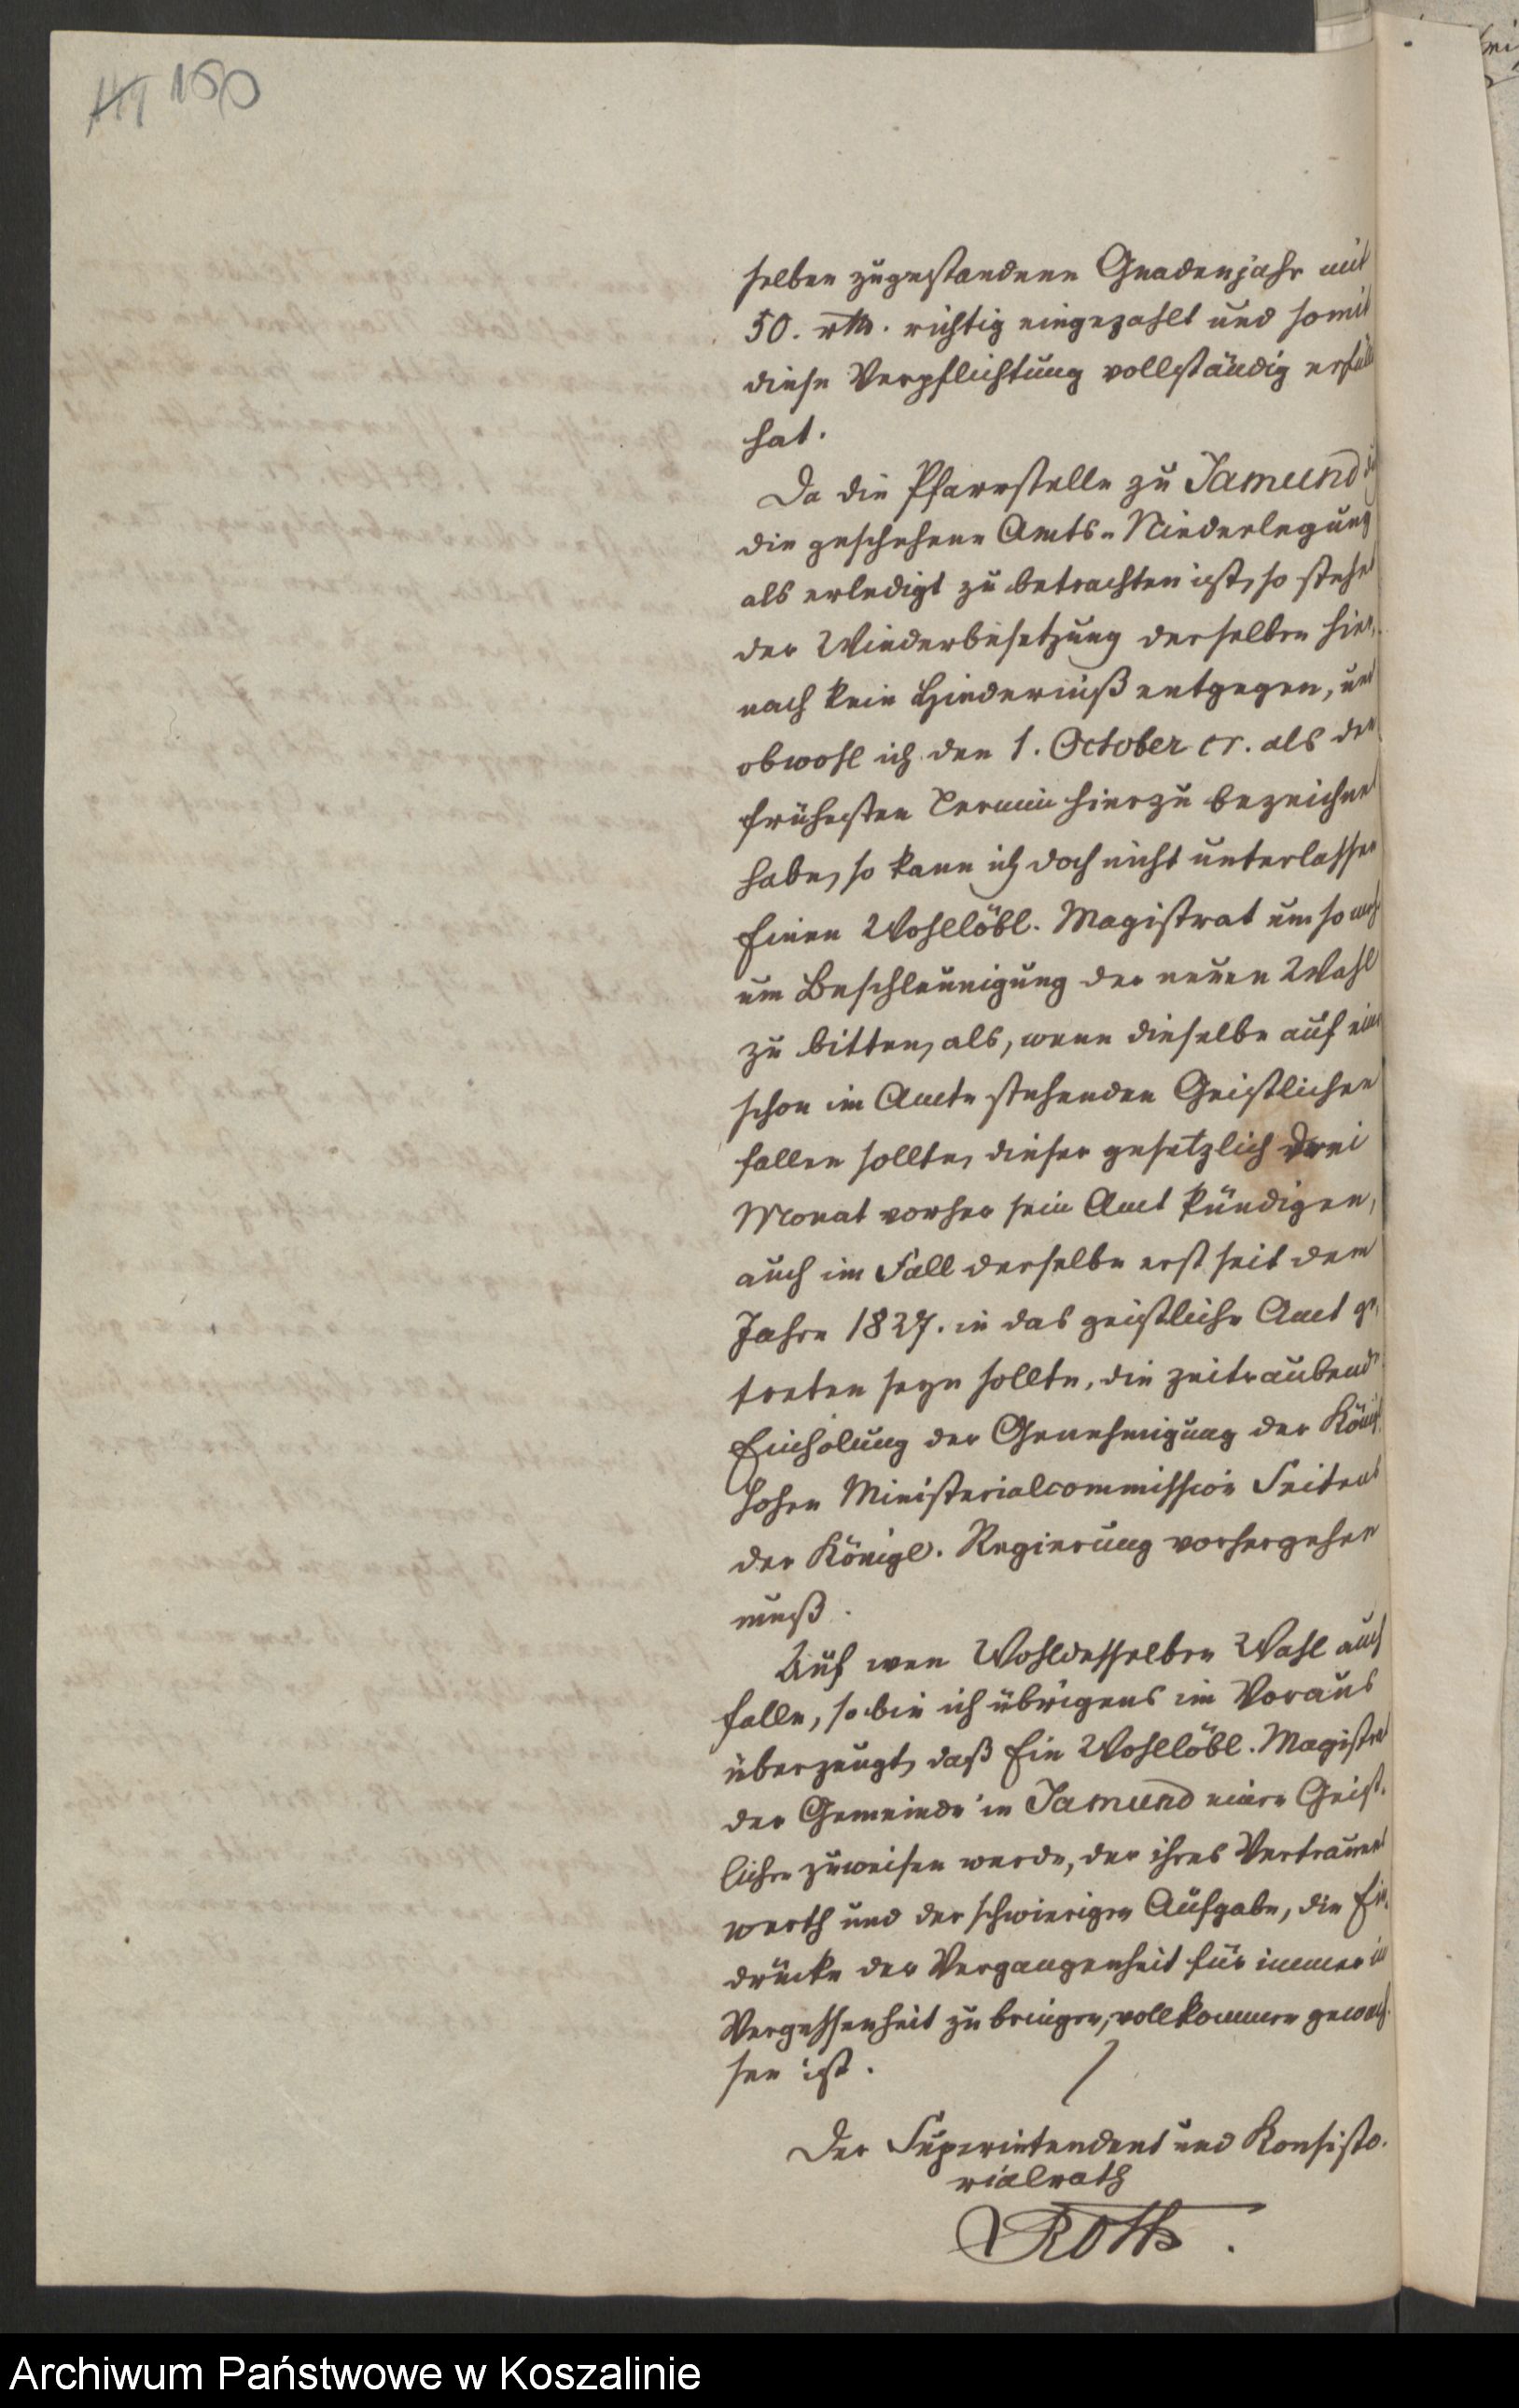 150
selben zugestandene Gnadenjahr mit
50. rth. richtig eingezahlt und somit
diese Verpflichtung vollständig erfüllt
hat.
Da die Pfarrstelle zu Jamund
die geschehene Amts-Niederlegung
als erledigt zu betrachten ist, so steht
der Wiederbesetzung derselben hier-
nach kein Hinderniß entgegen, und
obwohl ich den 1. October cr. als den
frühesten Termin hierzu bezeichnet
habe, so kann ich doch nicht unterlassen
Einen Wohllöbl. Magistrat um so mehr
um Beschleunigung der neuen Wahl
zu bitten, als, wenn dieselbe auf einen
schon im Amte stehenden Geistlichen
fallen sollte, dieser gesetzlich drei
Monat vorher sein Amt kündigen,
auch im Fall derselbe erst seit dem
Jahre 1827. in das geistliche Amt ge-
treten seyn sollte, die zeitraubende
Einholung der Genehmigung der Königl.
hohen Ministerialcommission Seitens
der Königl. Regierung vorhergehen
muß.
Auf wen Wohldesselben Wahl auch
falle, so bin ich übrigens im Voraus
überzeugt, daß Ein Wohllöbl. Magistrat
der Gemeinde in Jamund einen Geist-
lichen zuweisen werde, der ihres Vertrauens
werth und der schwierigen Aufgabe, die Ein-
drücke der Vergangenheit für immer in
Vergessenheit zu bringen, vollkommen gewach-
sen ist.
Der Superintendent und Konsisto-
rialrath
Roth.
Archiwum Państwowe w Koszalinie